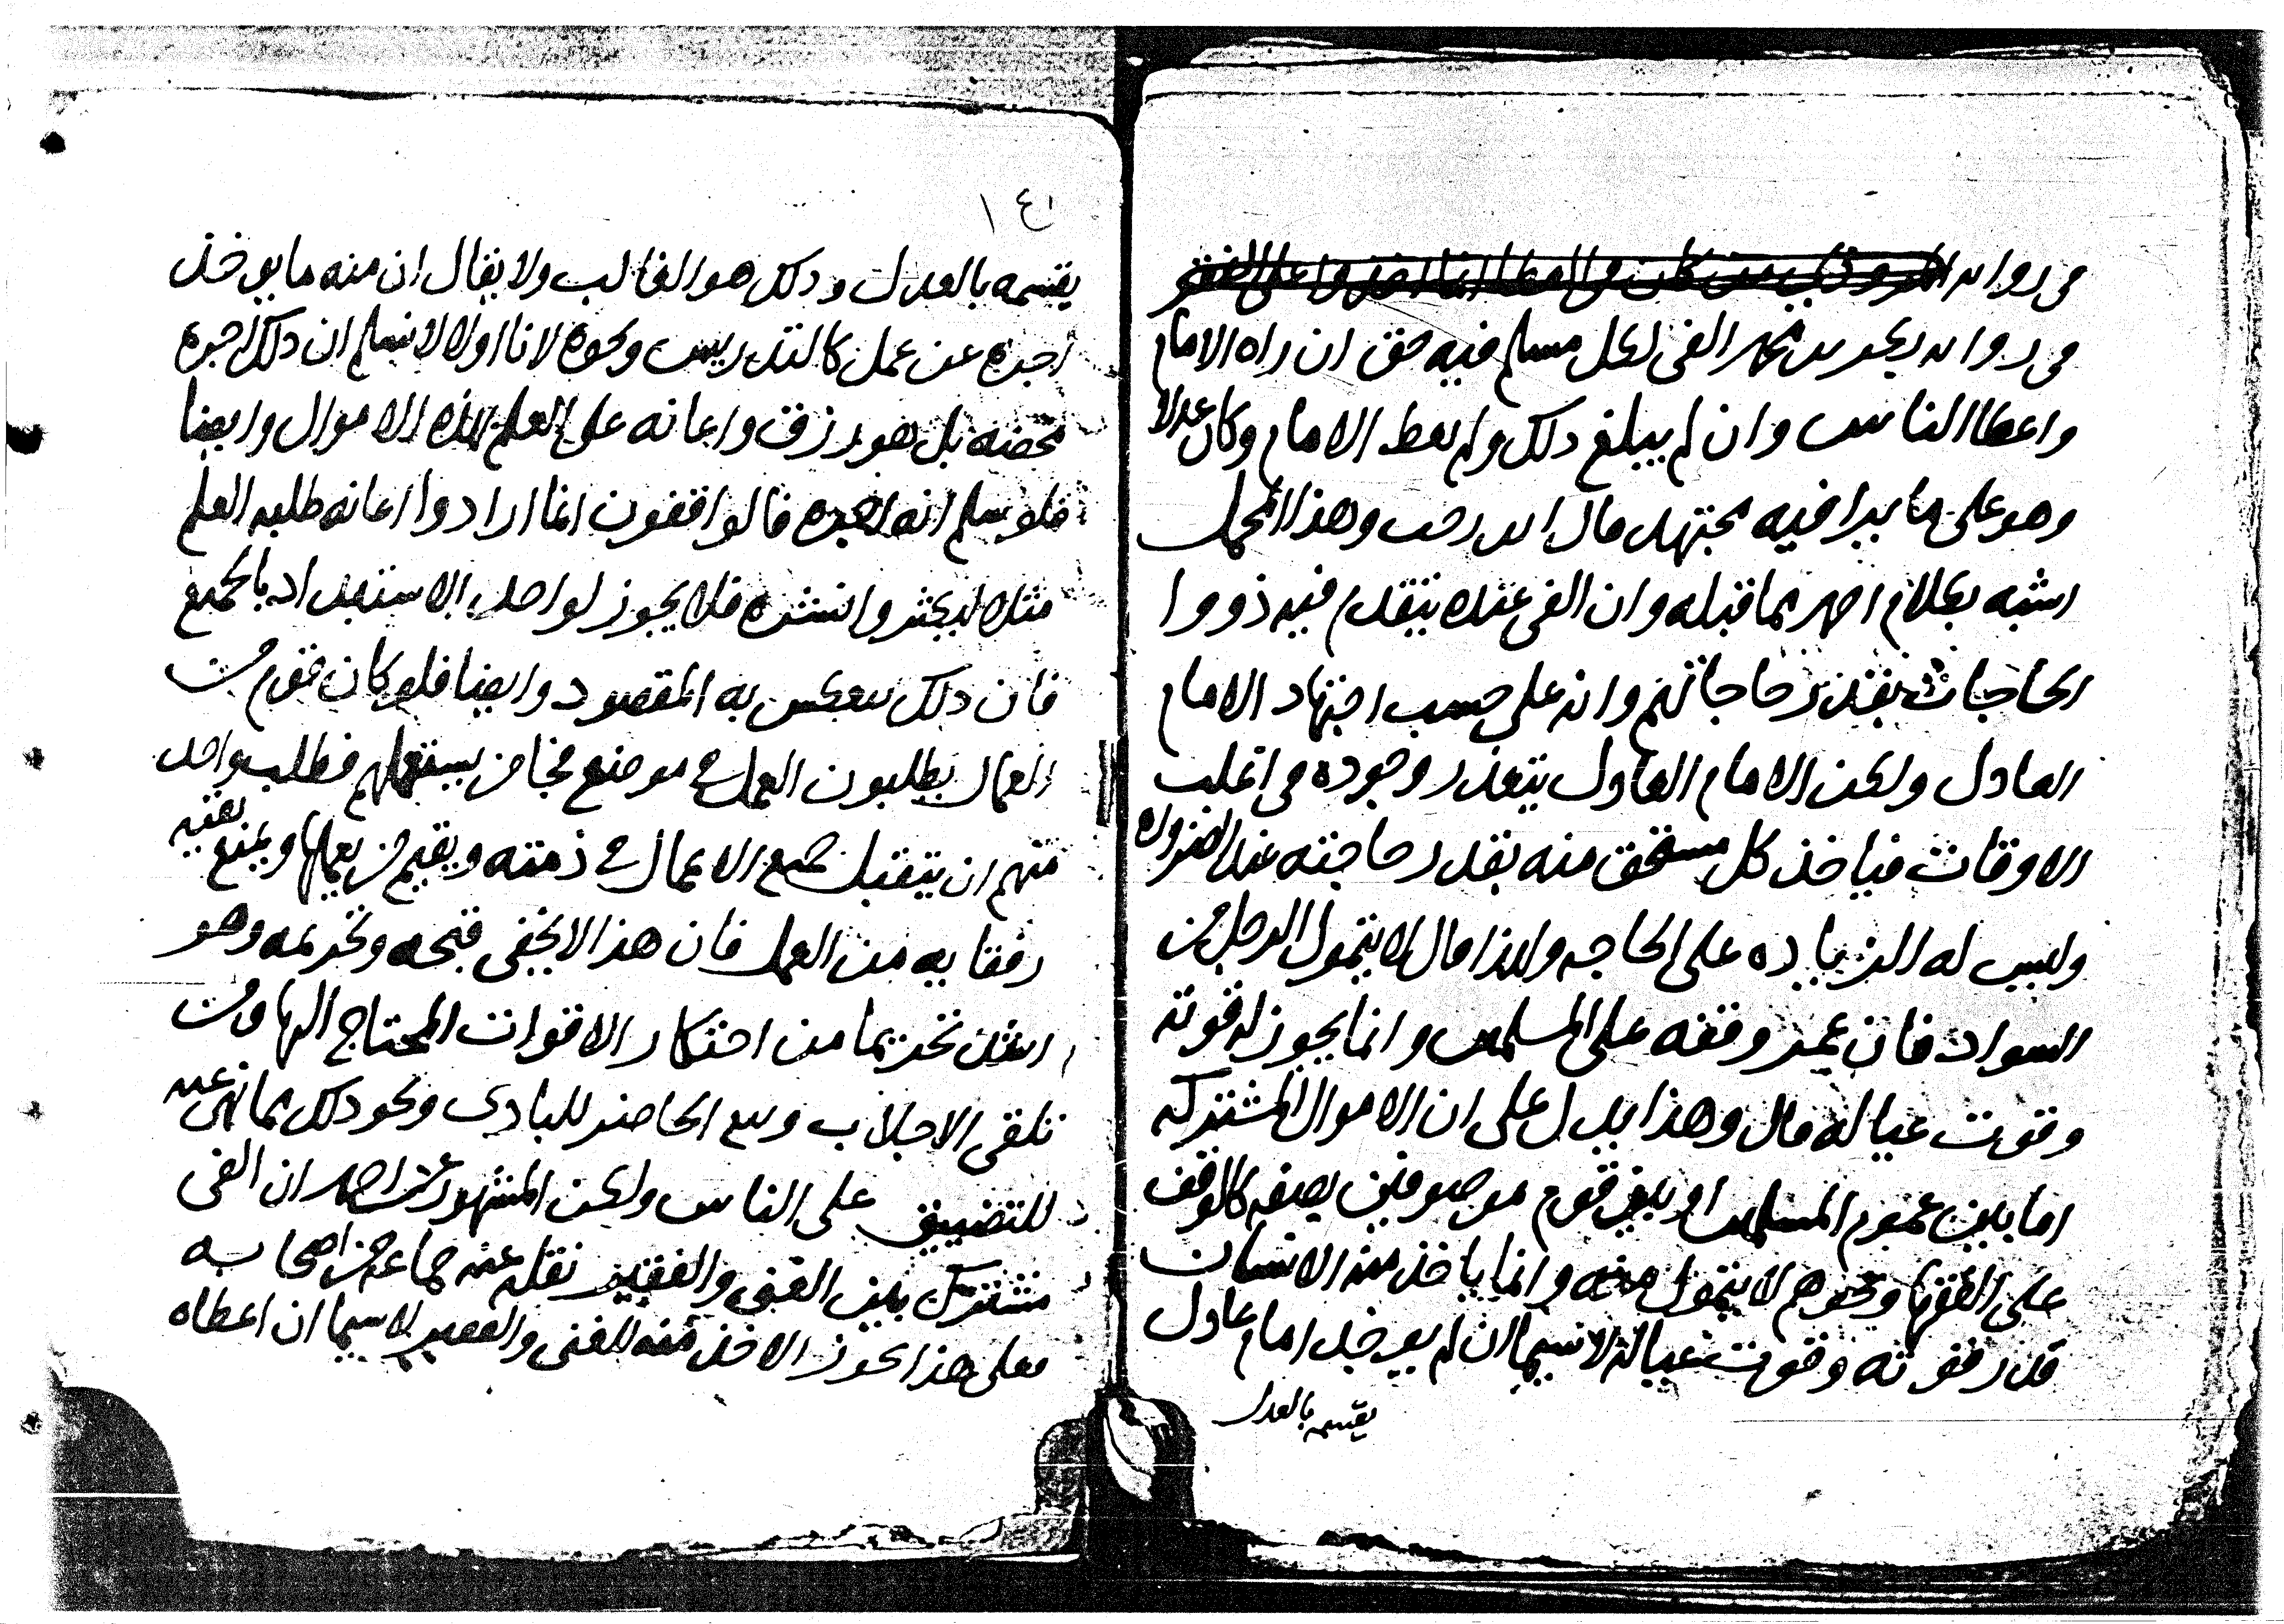 في رواية المروذي فيمن كان
في رواية بكر بن محمد الفي لكل مسلم فيه حق ان راه الامام
واعطا الناس وان لم يبلغ ذلك ولم يعط الامام وكان عدلا
وهو على ما يرا فيه مجتهد قال ابن رجب وهذا المحمل
اشبه بكلام احمد مما قبله وان الفي عنده يتقدم فيه ذووا
الحاجات بقدر حاجاتهم وانه على حسب اجتهاد الامام
العادل ولكن الامام العادل يتعذر وجوده في اغلب
الاوقات فياخذ كل مستحق منه بقدر حاجته عند الضرورة
وليس له الزيادة على الحاجة ولهذا قال لا يتمول الرجل من
السواد فان عمر وقفه على المسلمين وانما يجوز له قوته
وقوت عياله قال وهذا يدل على ان الاموال المشتركة
اما بين عموم المسلمين او بين قوم موصوفين بصفة كالوقف
على الفقها ونحوهم لا يتمول منه وانما ياخذ منه الانسان
قدر قوته وقوت عياله لا سيما ان لم يوجد امام عادل
يقسمه بالعدل
١٤١
يقسمه بالعدل وذلك هو الغالب ولا يقال ان منه ما يوخذ
اجرة عن عمل كالتدريس ونحوه لانا اولا لا نسلم ان ذلك اجرة
محضه بل هو رزق واعانه على العلم بهذه الاموال وايضا
فلو سلم انه اجره فالواقفون انما ارادوا اعانه طلبه العلم
مثلا ليكثروا فلا يجوز لواحد الاستبداد بالجميع
فان ذلك ينعكس به المقصود وايضا فلو كان قوم من
العمال يطلبون العمل في موضع فجا من يستعملهم فطلب واحد
منهم ان يتقبل جميع الاعمال في ذمته ويقيم من يعملها ويمنع بقيه
رفقايه من العمل فان هذا لا يخفى قبحه وتحريمه وهو
اشد تحريما من احتكار الاقوات المحتاج اليها ومن
تلقى الاجلاب وبيع الحاضر للبادي ونحو ذلك مما نهى عنه
للتضييق على الناس ولكن المشهور عن احمد ان الفي
مشترك بين الغني والفقير نقله عنه جماعة من اصحابه
فعلى هذا يجوز الاخذ منه للغني والفقير لا سيما ان اعطاه